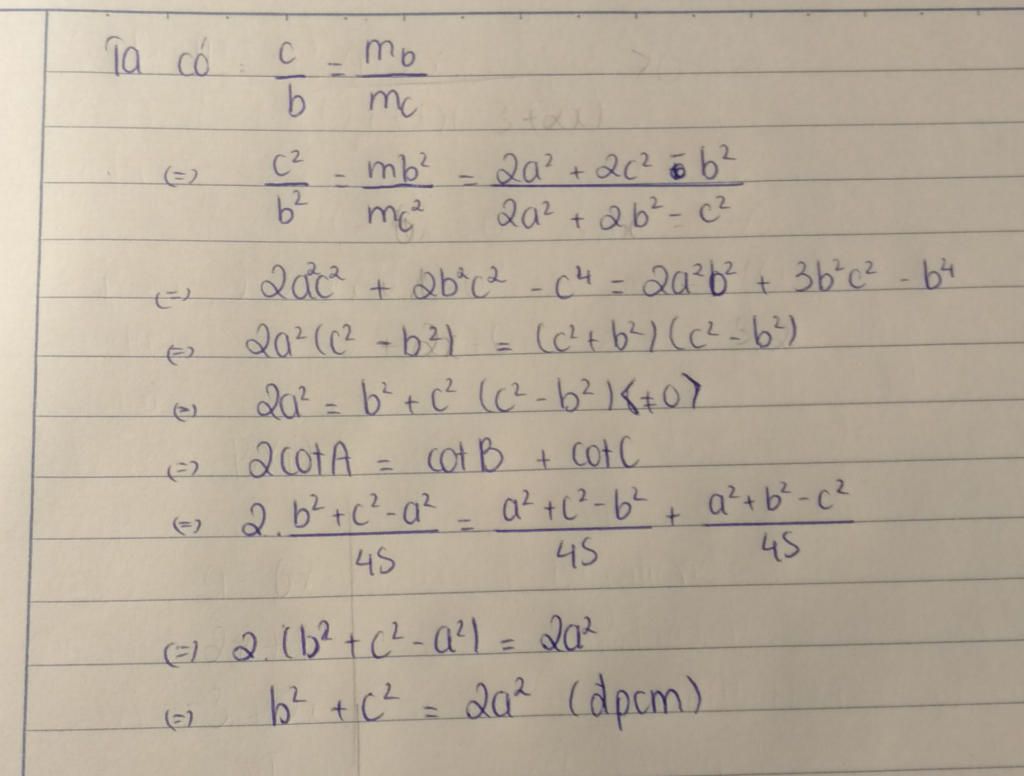 Ta có c/b = mb/mc
(=) c²/b² = mb²/mc² = (2a² + 2c² - b²)/(2a² + 2b² - c²)
(=) 2a²c² + 2b²c² - c⁴ = 2a²b² + 3b²c² - b⁴
(=) 2a²(c² - b²) = (c² + b²)(c² - b²)
(=) 2a² = b² + c² (c² - b²)(≠0)
(=) 2cotA = cotB + cotC
(=) 2.(b² + c² - a²)/4S = (a² + c² - b²)/4S + (a² + b² - c²)/4S
(=) 2.(b² + c² - a²) = 2a²
(=) b² + c² = 2a² (dpcm)